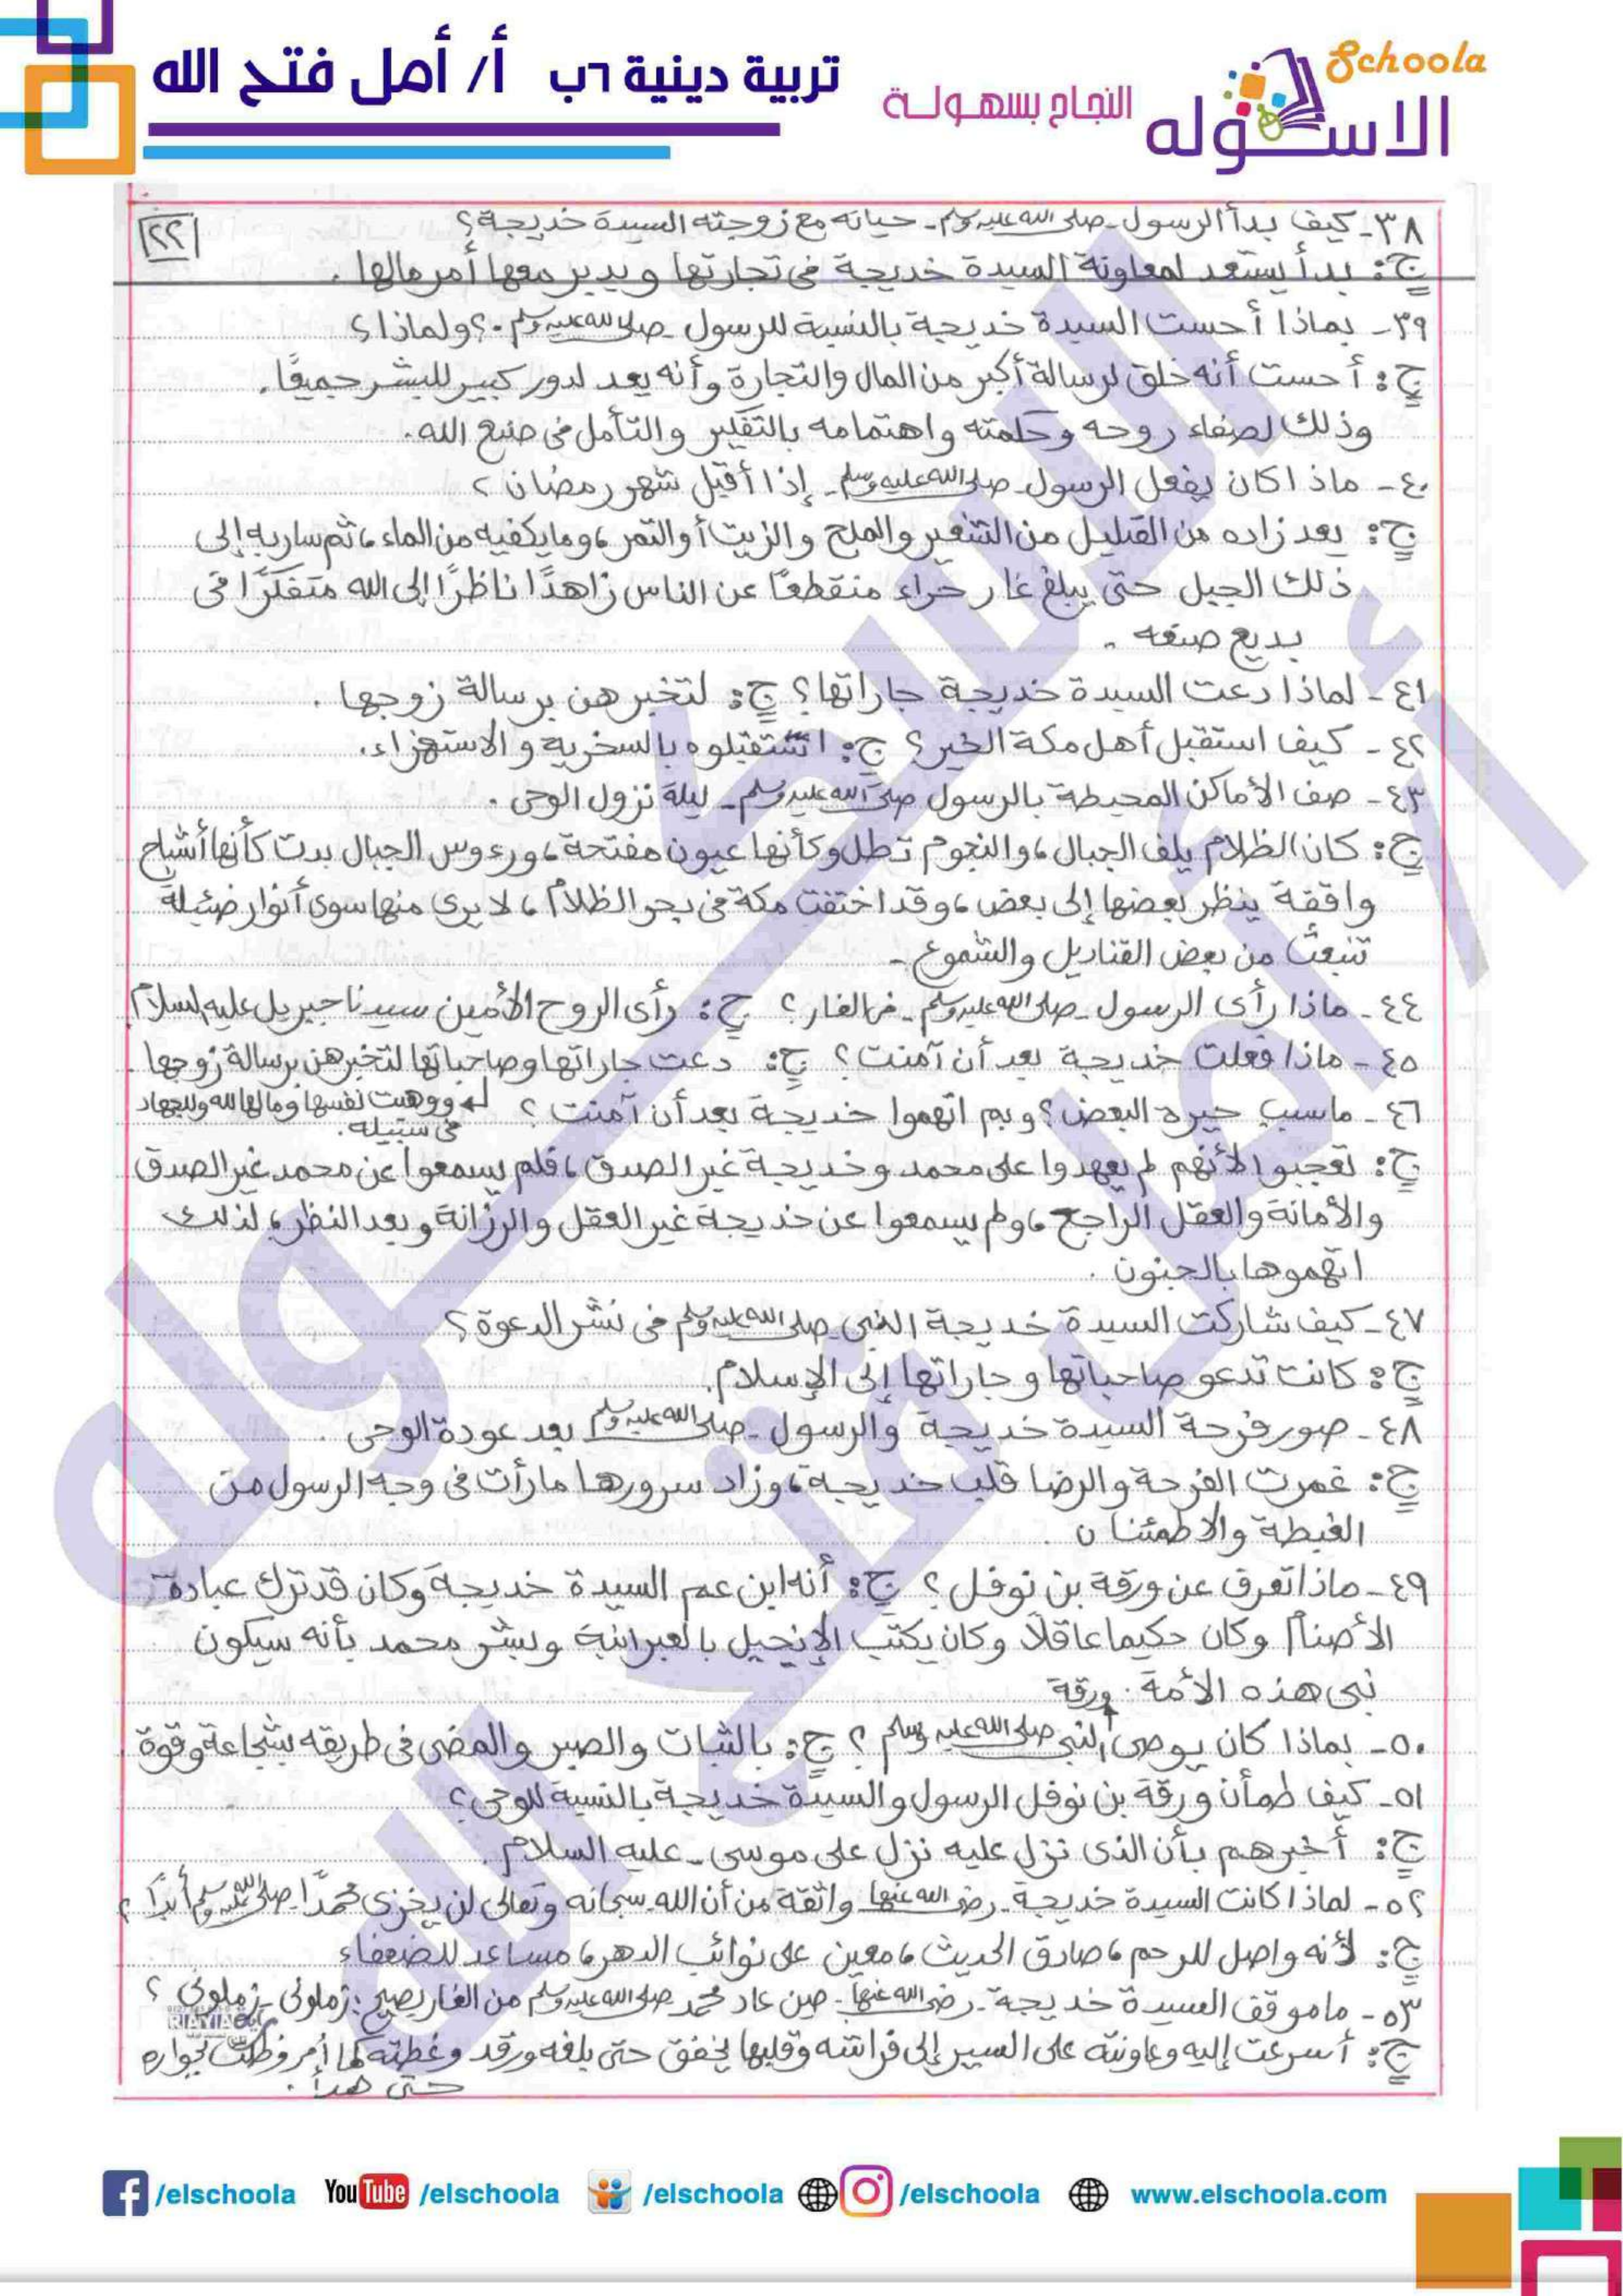 Schoola
الاسكوله
النجاح بسهولة
تربية دينية ٦ب أ/ أمل فتح الله
٢٢
٣٨- كيف بدأ الرسول - صلى الله عليه وسلم - حياته مع زوجته السيدة خديجة؟
ج: بدأ يستعد لمعاونة السيدة خديجة فى تجارتها ويدير معها أمر مالها.
٣٩- بماذا أحست السيدة خديجة بالنسبة للرسول - صلى الله عليه وسلم -؟ ولماذا؟
ج: أحست أنه خلق لرسالة أكبر من المال والتجارة وأنه يعد لدور كبير للبشر جميعًا.
وذلك لصفاء روحه وحكمته واهتمامه بالتفكير والتأمل فى صنع الله.
٤٠- ماذا كان يفعل الرسول - صلى الله عليه وسلم - إذا أقبل شهر رمضان؟
ج: يعد زاده من القليل من الشعير والملح والزيت أو التمر، وما يكفيه من الماء، ثم سار به إلى
ذلك الجبل حتى يبلغ غار حراء منقطعًا عن الناس زاهدًا ناظرًا إلى الله متفكرًا فى
بديع صنعه.
٤١- لماذا دعت السيدة خديجة جاراتها؟ ج: لتخبرهن برسالة زوجها.
٤٢- كيف استقبل أهل مكة الخبر؟ ج: استقبلوه بالسخرية والاستهزاء.
٤٣- صف الأماكن المحيطة بالرسول صلى الله عليه وسلم - ليلة نزول الوحى.
ج: كان الظلام يلف الجبال، والنجوم تطل وكأنها عيون مفتحة، ورءوس الجبال بدت كأنها أشباح
واقفة ينظر بعضها إلى بعض، وقد اختفت مكة فى بحر الظلام، لا يرى منها سوى أنوار ضئيلة
تنبعث من بعض القناديل والشموع.
٤٤- ماذا رأى الرسول - صلى الله عليه وسلم - فى الغار؟ ج: رأى الروح الأمين سيدنا جبريل عليه السلام
٤٥- ماذا فعلت خديجة بعد أن آمنت؟ ج: دعت جاراتها وصاحباتها لتخبرهن برسالة زوجها.
ووهبت نفسها ومالها لله وللجهاد
فى سبيله.
٤٦- ما سبب حيرة البعض؟ وبم اتهموا خديجة بعد أن آمنت؟
ج: تعجبوا لأنهم لم يعهدوا على محمد وخديجة غير الصدق، فلم يسمعوا عن محمد غير الصدق
والأمانة والعقل الراجح، ولم يسمعوا عن خديجة غير العقل والرزانة وبعد النظر، لذلك
اتهموها بالجنون.
٤٧- كيف شاركت السيدة خديجة النبى - صلى الله عليه وسلم فى نشر الدعوة؟
ج: كانت تدعو صاحباتها وجاراتها إلى الإسلام.
٤٨- صور فرحة السيدة خديجة والرسول - صلى الله عليه وسلم بعد عودة الوحى.
ج: غمرت الفرحة والرضا قلب خديجة، وزاد سرورها ما رأت فى وجه الرسول من
الغبطة والاطمئنان.
٤٩- ماذا تعرف عن ورقة بن نوفل؟ ج: أنه ابن عم السيدة خديجة وكان قد ترك عبادة
الأصنام وكان حكيما عاقلًا وكان يكتب الإنجيل بالعبرانية وبشر محمد بأنه سيكون
نبى هذه الأمة.
٥٠- بماذا كان يوصى ورقة النبى صلى الله عليه وسلم؟ ج: بالثبات والصبر والمضى فى طريقه بشجاعة وقوة
٥١- كيف طمأن ورقة بن نوفل الرسول والسيدة خديجة بالنسبة للوحى؟
ج: أخبرهم بأن الذى نزل عليه نزل على موسى - عليه السلام.
٥٢- لماذا كانت السيدة خديجة - رضى الله عنها واثقة من أن الله - سبحانه وتعالى لن يخزى محمدًا - صلى الله عليه وسلم أبدًا؟
ج: لأنه واصل للرحم، صادق الحديث، معين على نوائب الدهر، مساعد للضعفاء
٥٣- ما موقف السيدة خديجة - رضى الله عنها - حين عاد محمد صلى الله عليه وسلم من الغار يصيح: زملونى - زملونى؟
ج: أسرعت إليه وعاونته على السير إلى فراشه وقلبها يخفق حتى بلغه ورقد وغطته كما أمر وظلت بجواره
حتى هدأ.
الاسكوله
أ/ أمل فتح الله
/elschoola YouTube /elschoola /elschoola /elschoola www.elschoola.com